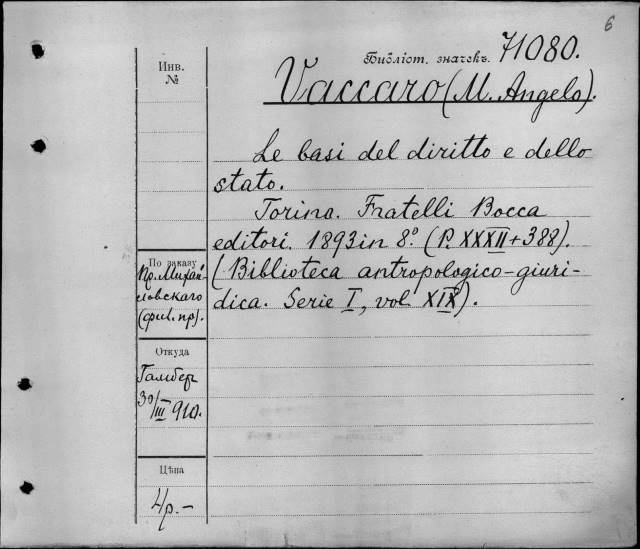 6
Библіот. значекъ. 71080.
Инв.
№
Vaccaro (M. Angelo).
Le basi del diritto e dello
stato.
Torino. Fratelli Bocca
editori. 1893 in 8°. (P. XXXII + 388).
(Biblioteca antropologico-giuri-
dica. Serie I, vol. XIX).
По заказу
Пр. Михай-
ловскаго
(фил. пр).
Откуда
Гамбер
30/III 910.
Цѣна
4р.-